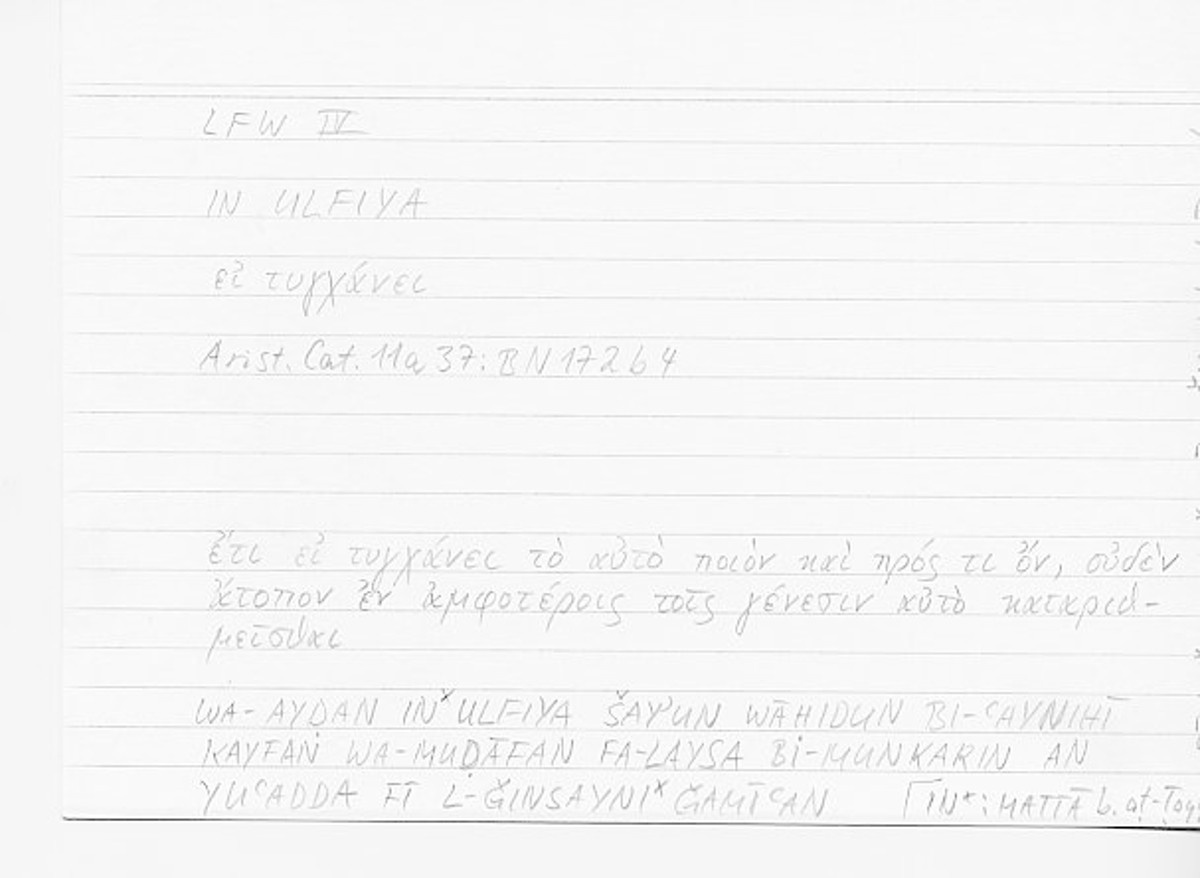 LFW IV
IN ULFIYA
εἰ τυγχάνει
Arist. Cat. 11a 37: BN 172 b 4
ἔτι εἰ τυγχάνει τὸ αὐτὸ ποιὸν καὶ πρός τι ὄν, οὐδὲν
ἄτοπον ἐν ἀμφοτέροις τοῖς γένεσιν αὐτὸ καταριθ-
μεῖσθαι
WA-AYḌAN IN* ULFIYA ŠAYʾUN WĀḤIDUN BI-ʿAYNIHĪ
KAYFAN WA-MUḌĀFAN FA-LAYSA BI-MUNKARIN AN
YUʿADDA FĪ L-ǦINSAYNI* ǦAMĪʿAN ⌈IN*: MATTĀ b. at-Tay